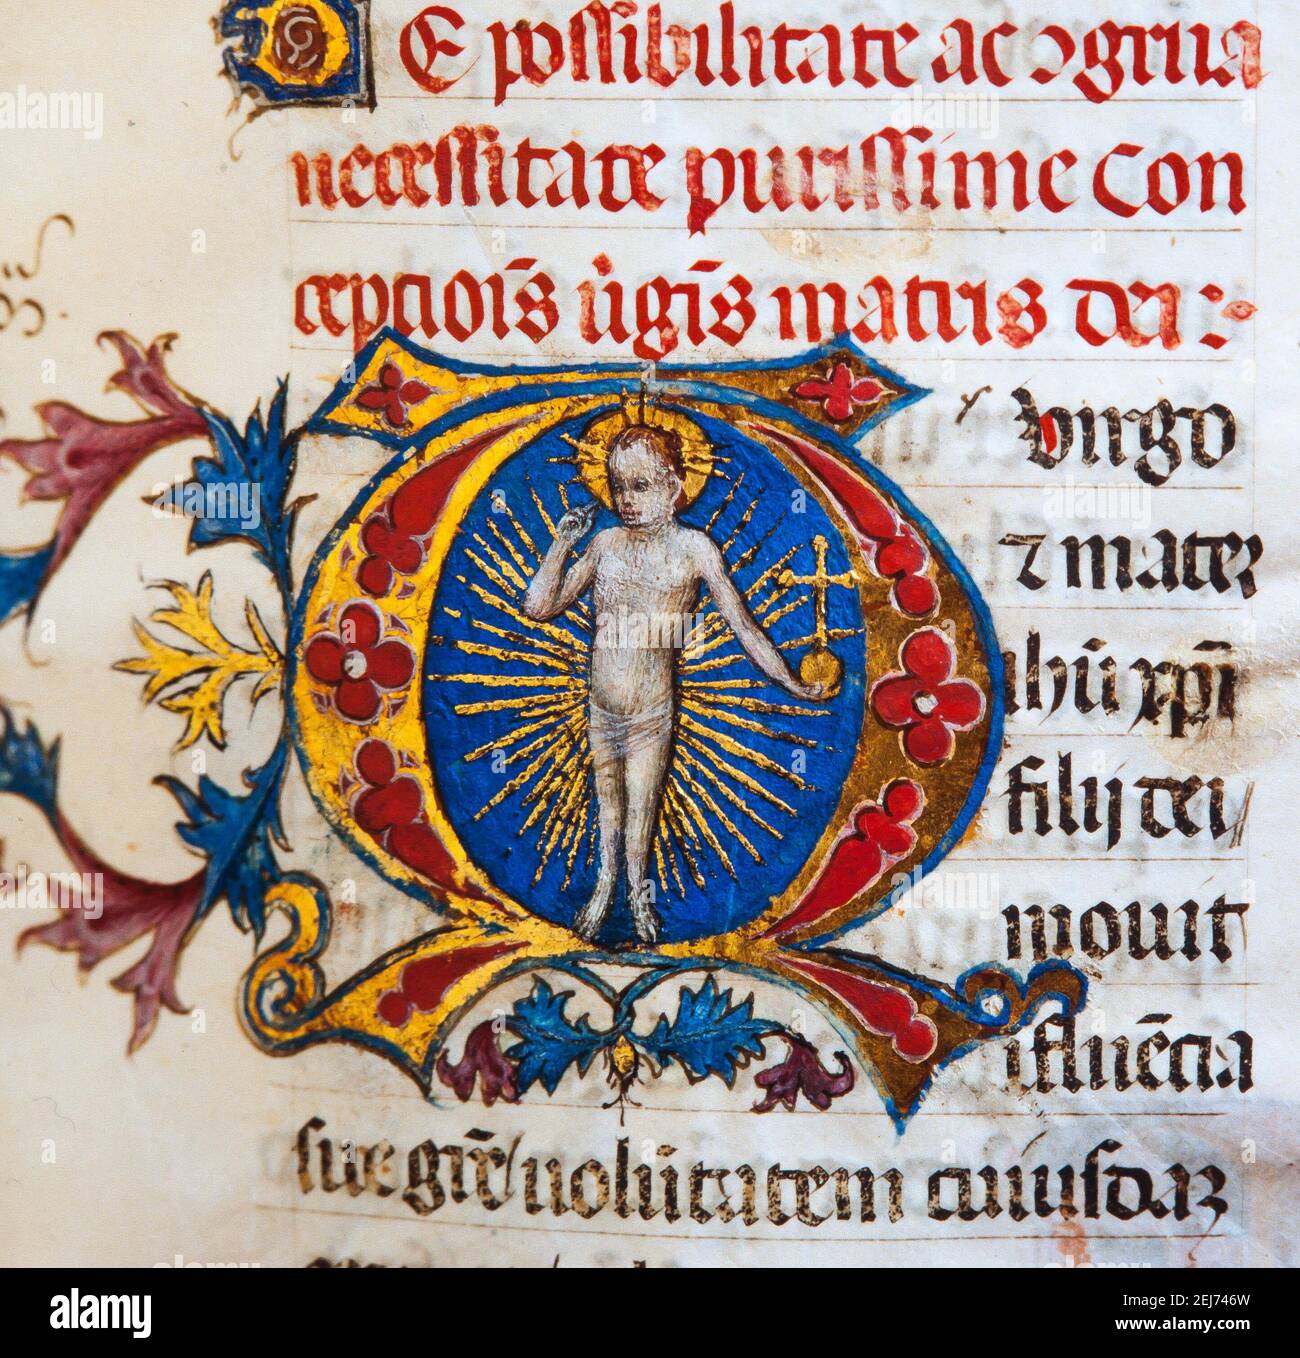 De possibilitate ac ɔgrua
necessitate purissime Con
ceptiois ũgis matris dei
O virgo
⁊ mater
ihũ xp̃i
filij dei
mouit
ifluẽtia
sue grẽ / uolũtatem cuiusdaʒ
alamy
Image ID: 2EJ746W
www.alamy.com